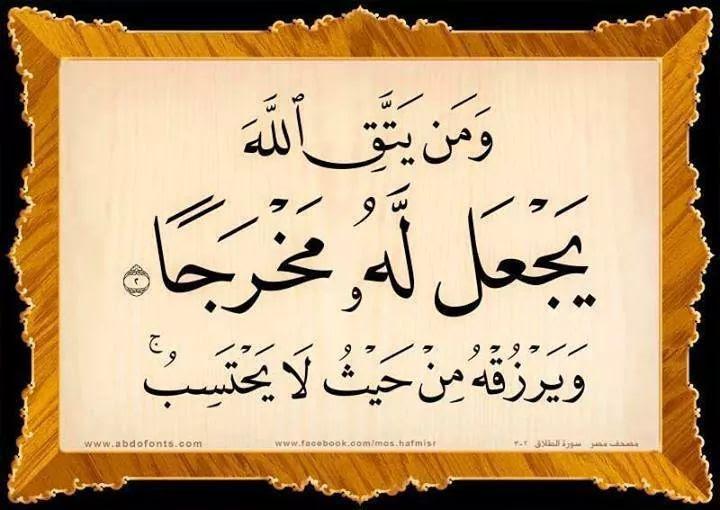 وَمَن يَتَّقِ ٱللَّهَ
يَجْعَل لَّهُۥ مَخْرَجًا ٢
وَيَرْزُقْهُ مِنْ حَيْثُ لَا يَحْتَسِبُ ۚ
مصحف مصر سورة الطلاق ٢-٣ www.facebook.com/mos.hafmisr www.abdofonts.com